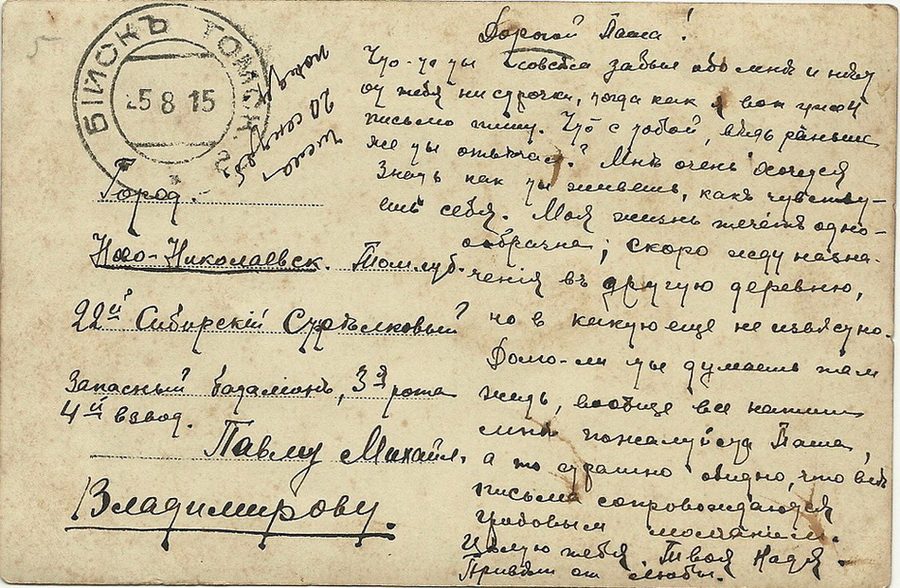 БІЙСКЪ ТОМСК.
25 8 15
Город.
Ново-Николаевск. Том. губ.
22й Сибирскій Стрѣлковый
Запасный баталіонъ, 3я рота
4й взвод.
Павлу Михайл.
Владимирову.
Дорогой Паша!
Что-то ты совсѣм забыл обо мнѣ и нѣту
от тебя ни строчки, тогда как я вот
письмо пишу. Что с тобой, вѣдь раньше
же ты отвѣчал? Мнѣ очень хочется
знать как ты живешь, какъ чувству-
ешь себя. Моя жизнь течетъ одно-
образна; скоро жду назна-
ченія въ другую деревню,
но в какую еще не извѣстно.
Долго-ли ты думаешь там
жить, вообще все напиши
мнѣ пожалуйста Паша,
а то страшно обидно, что всѣ
письма сопровождаются
гробовым молчаніем.
Цѣлую тебя. Твоя Надя.
Привѣт от Любы.